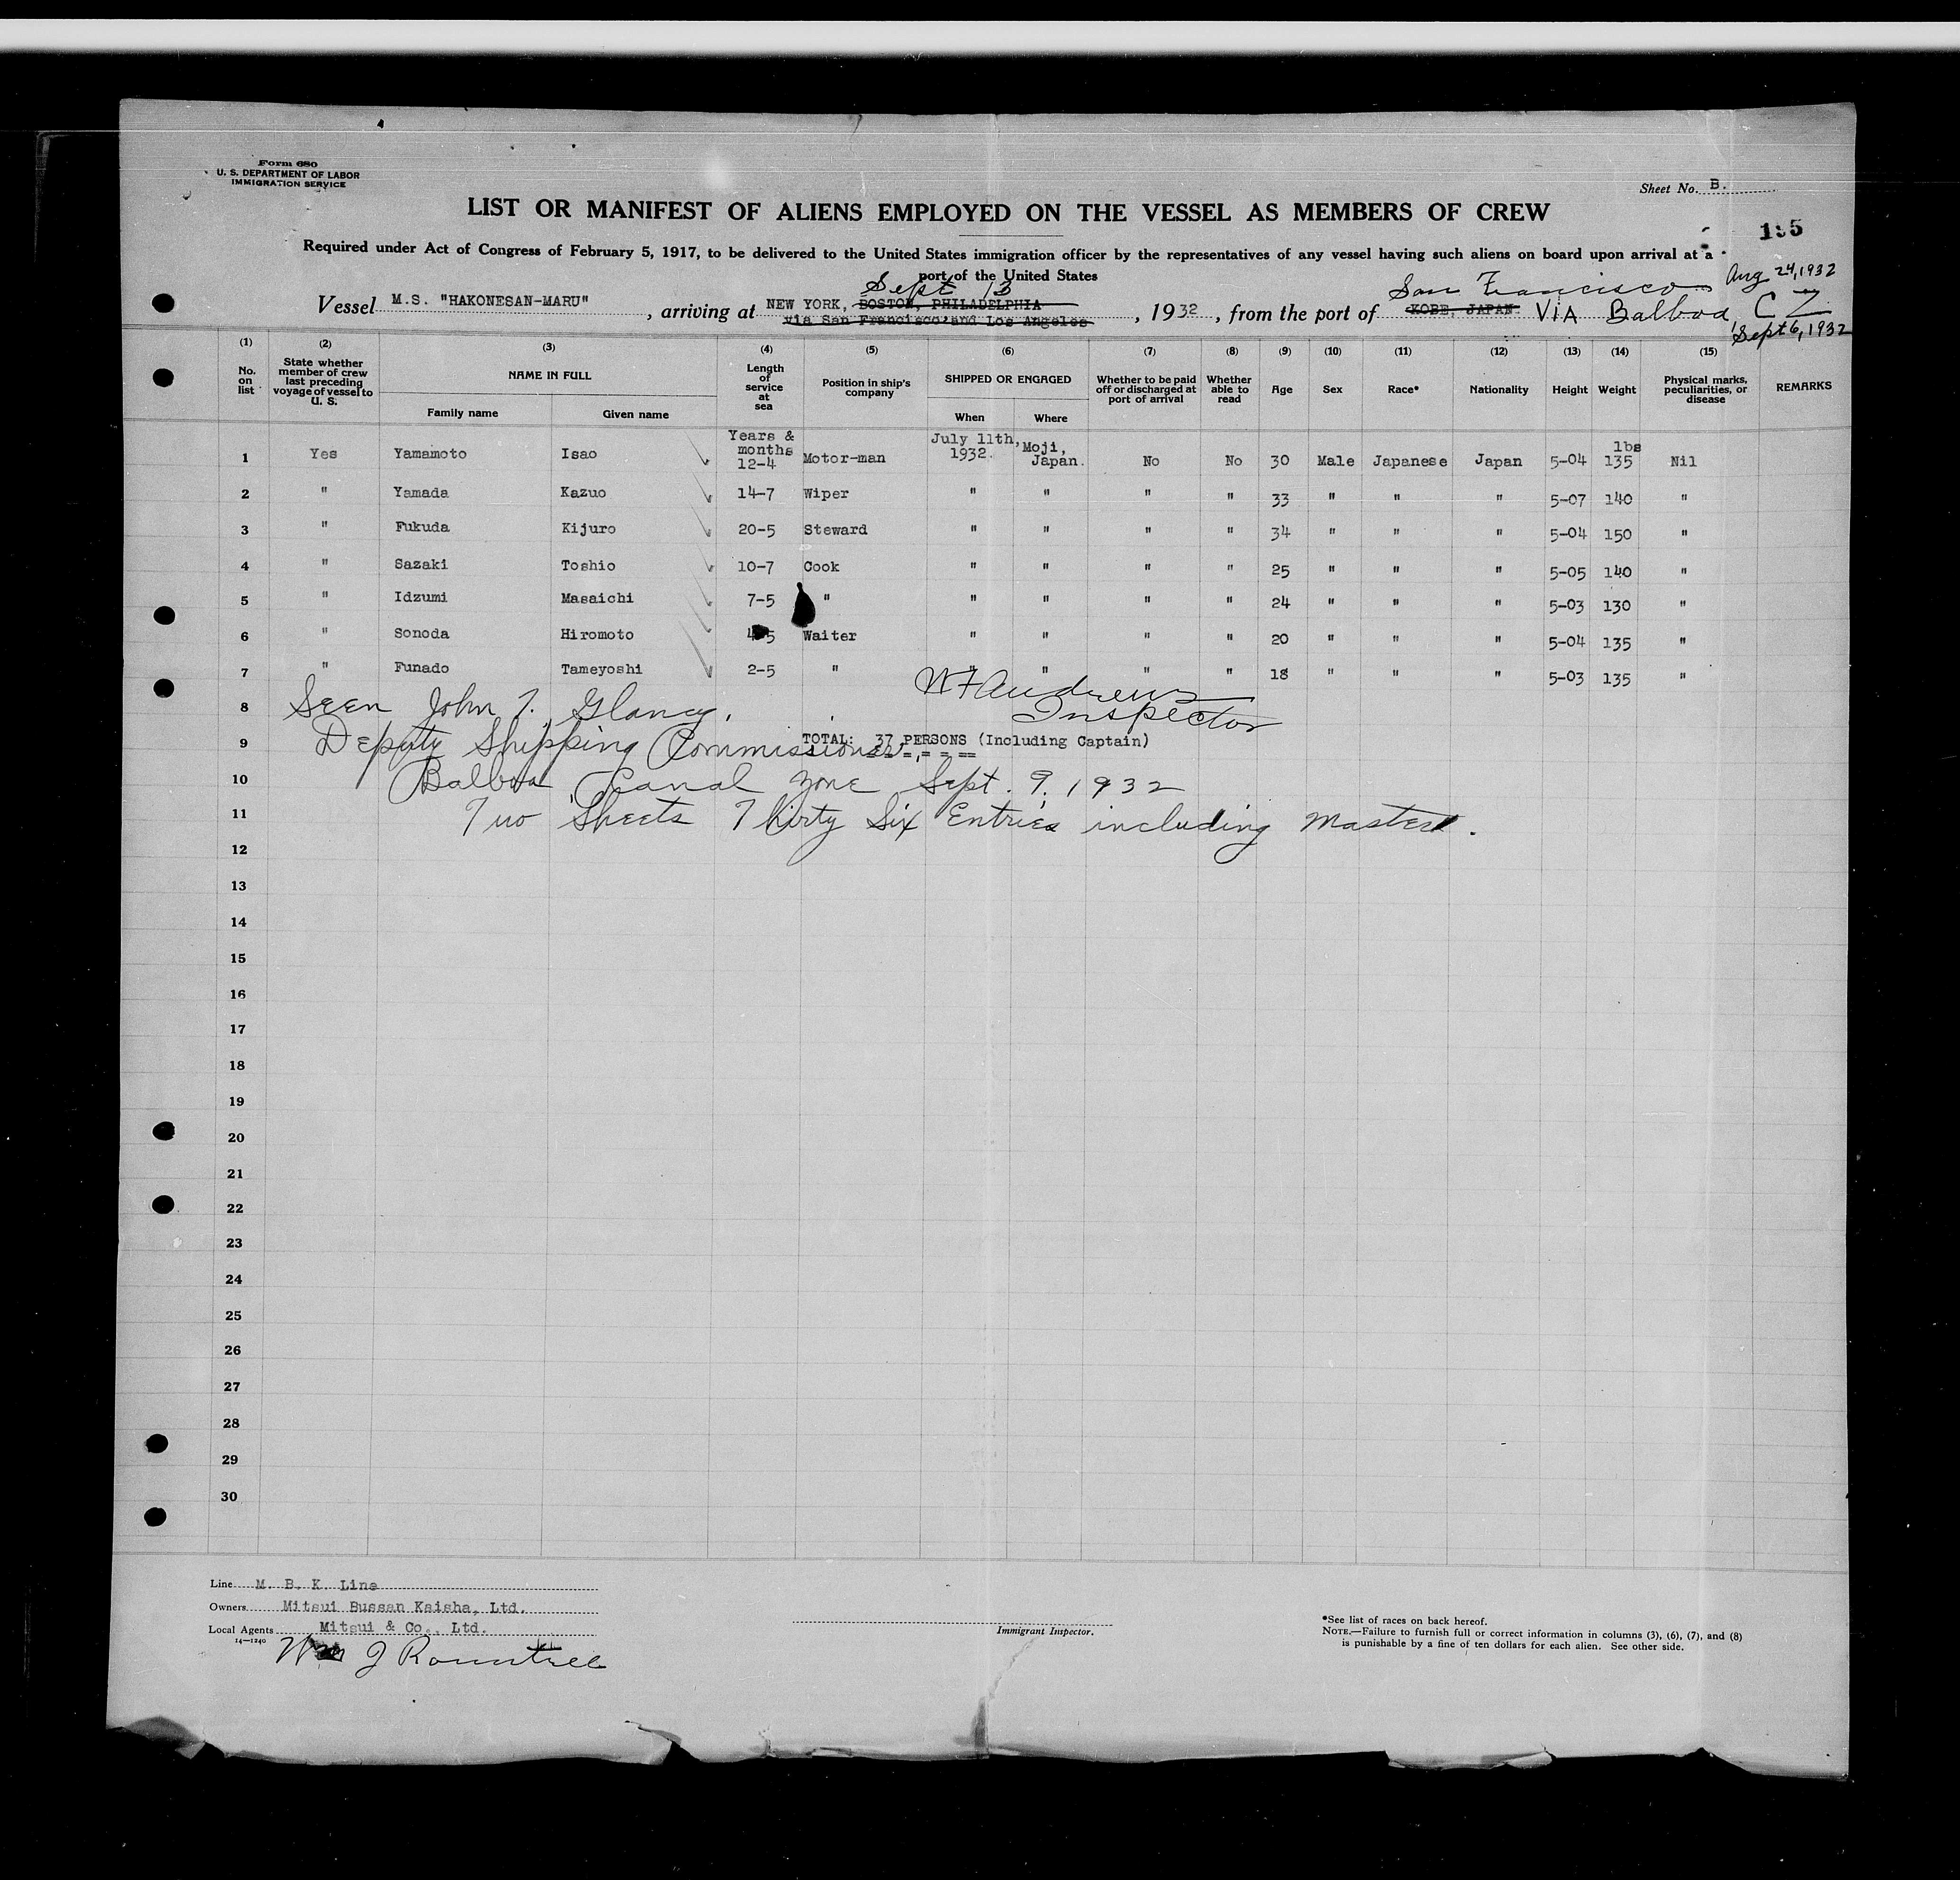 Form 680
U. S. DEPARTMENT OF LABOR
IMMIGRATION SERVICE
Sheet No. B.
LIST OR MANIFEST OF ALIENS EMPLOYED ON THE VESSEL AS MEMBERS OF CREW
Required under Act of Congress of February 5, 1917, to be delivered to the United States immigration officer by the representatives of any vessel having such aliens on board upon arrival at a
port of the United States
Aug 24, 1932
Sept 13
San Francisco
Vessel M.S. "HAKONESAN-MARU", arriving at NEW YORK, BOSTON, PHILADELPHIA, 1932, from the port of KOBE, JAPAN. VIA Balboa, C Z
via San Francisco and Los Angeles
Sept 6, 1932
(1) (2) (3) (4) (5) (6) (7) (8) (9) (10) (11) (12) (13) (14) (15)
No. on list
State whether member of crew last preceding voyage of vessel to U. S.
NAME IN FULL
Family name Given name
Length of service at sea
Position in ship's company
SHIPPED OR ENGAGED
When Where
Whether to be paid off or discharged at port of arrival
Whether able to read
Age
Sex
Race*
Nationality
Height
Weight
Physical marks, peculiarities, or disease
REMARKS
Years & months
lbs
1 Yes Yamamoto Isao 12-4 Motor-man July 11th, 1932. Moji, Japan. No No 30 Male Japanese Japan 5-04 135 Nil
2 " Yamada Kazuo 14-7 Wiper " " " " 33 " " " 5-07 140 "
3 " Fukuda Kijuro 20-5 Steward " " " " 34 " " " 5-04 150 "
4 " Sazaki Toshio 10-7 Cook " " " " 25 " " " 5-05 140 "
5 " Idzumi Masaichi 7-5 " " " " " 24 " " " 5-03 130 "
6 " Sonoda Hiromoto 4-5 Waiter " " " " 20 " " " 5-04 135 "
7 " Funado Tameyoshi 2-5 " " " " " 18 " " " 5-03 135 "
W F Andrews
Inspector
8 Seen John T. Glancy,
9 Deputy Shipping Commissioner,
TOTAL: 37 PERSONS (Including Captain)
10 Balboa Canal Zone Sept. 9, 1932
11 Two Sheets Thirty Six Entries including Master.
12
13
14
15
16
17
18
19
20
21
22
23
24
25
26
27
28
29
30
Line M. B. K. Line
Owners Mitsui Bussan Kaisha, Ltd.
Local Agents Mitsui & Co., Ltd.
14—1240
Wm J Rountree
Immigrant Inspector.
*See list of races on back hereof.
NOTE.—Failure to furnish full or correct information in columns (3), (6), (7), and (8)
is punishable by a fine of ten dollars for each alien. See other side.